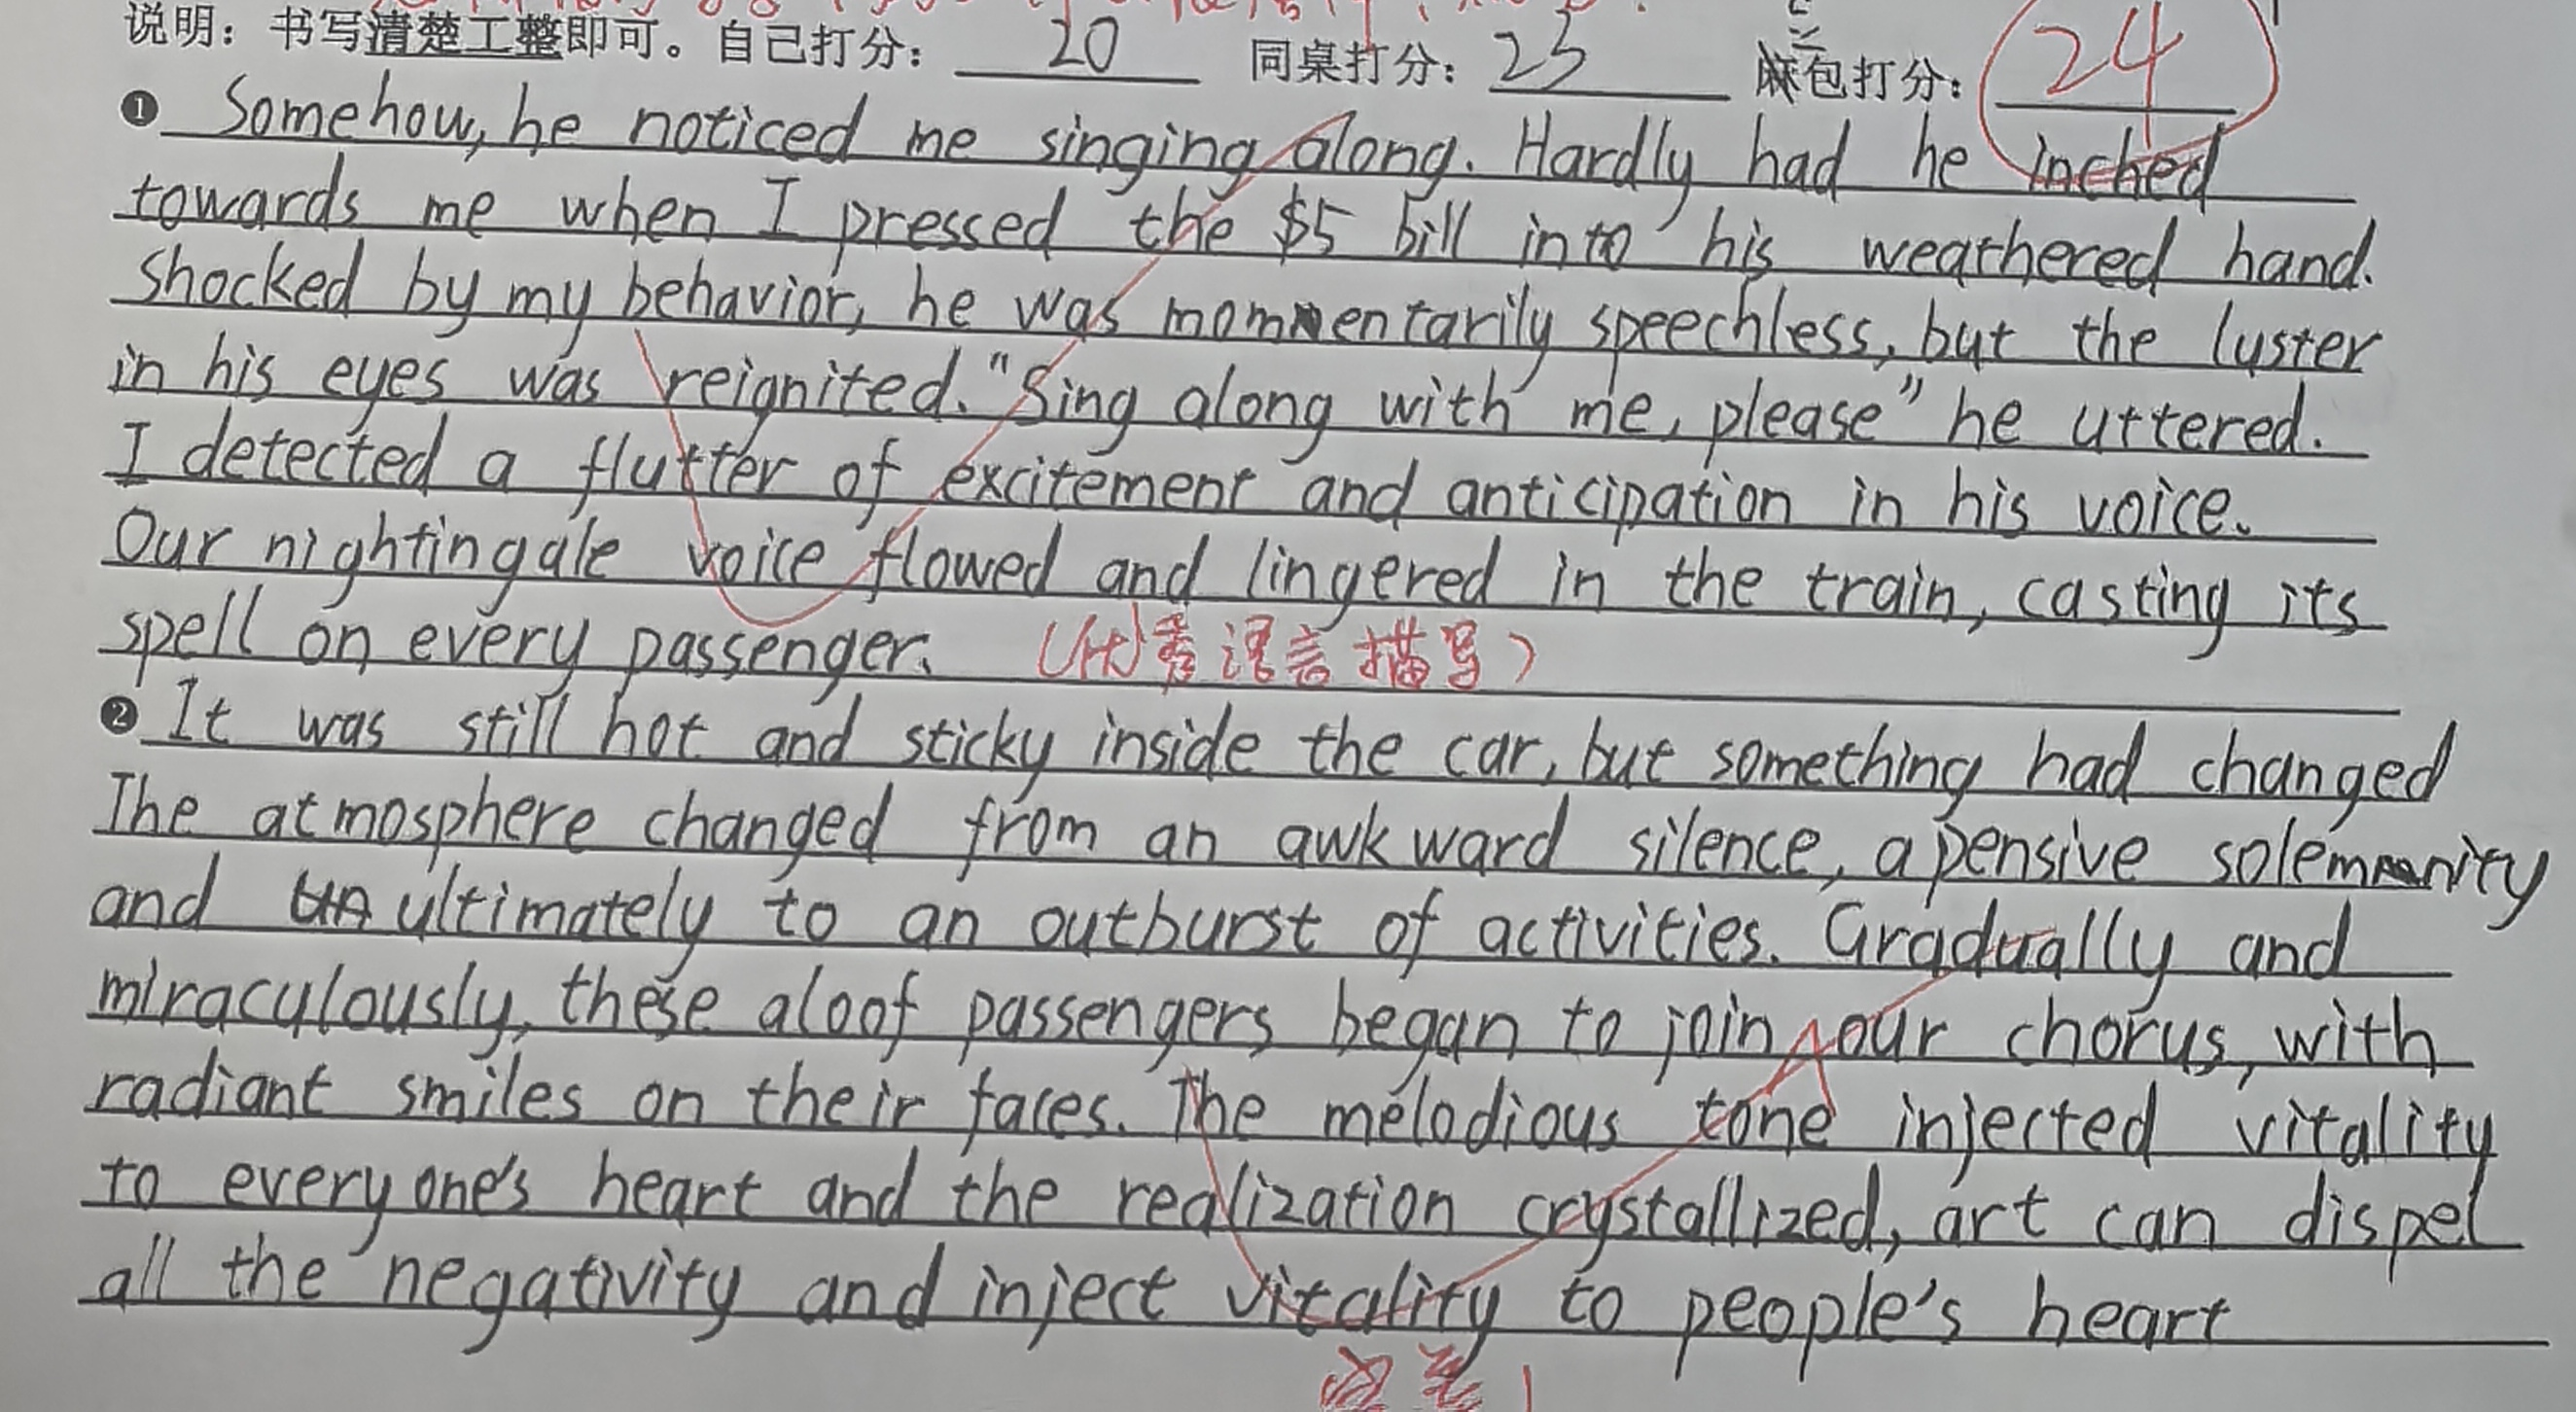 说明：书写清楚工整即可。自己打分： 20 同桌打分： 23 包打分： 24
❶ Somehow, he noticed me singing along. Hardly had he inched
towards me when I pressed the $5 bill into his weathered hand.
Shocked by my behavior, he was momentarily speechless, but the luster
in his eyes was reignited. "Sing along with me, please" he uttered.
I detected a flutter of excitement and anticipation in his voice.
Our nightingale voice flowed and lingered in the train, casting its
spell on every passenger. （优秀语言描写）
❷ It was still hot and sticky inside the car, but something had changed
The atmosphere changed from an awkward silence, a pensive solemnity
and ultimately to an outburst of activities. Gradually and
miraculously, these aloof passengers began to join our chorus, with
radiant smiles on their faces. The melodious tone injected vitality
to everyone's heart and the realization crystallized, art can dispel
all the negativity and inject vitality to people's heart